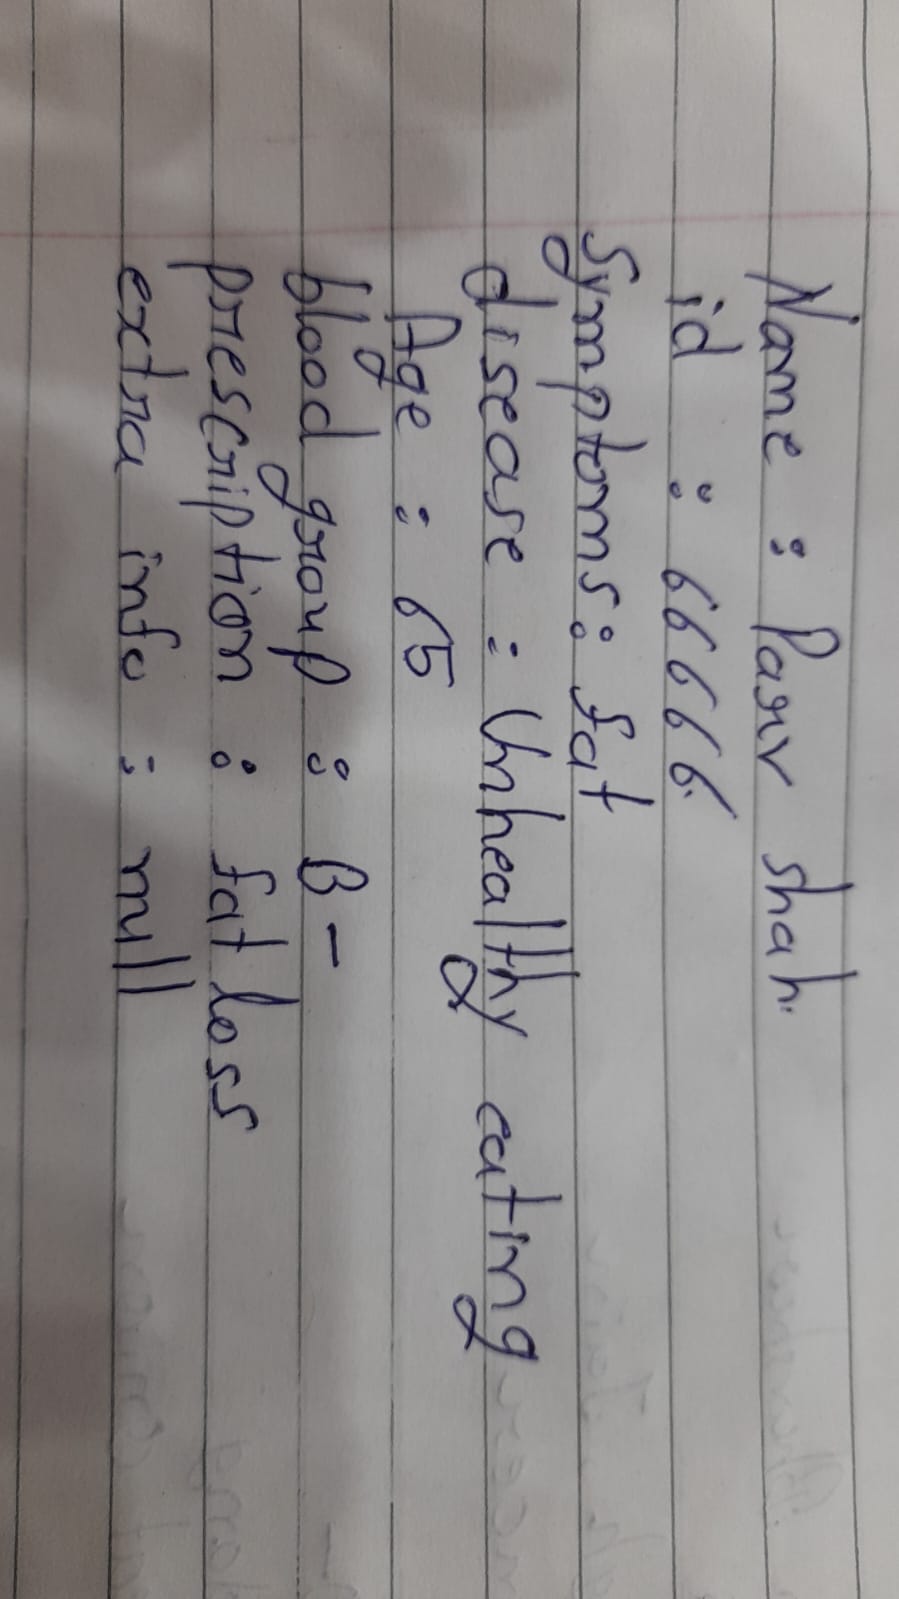 Name : Parv shah.
id : 66666.
Symptoms : fat
disease : Unhealthy eating
Age : 65
blood group : B-
prescription : fat loss
extra info : null